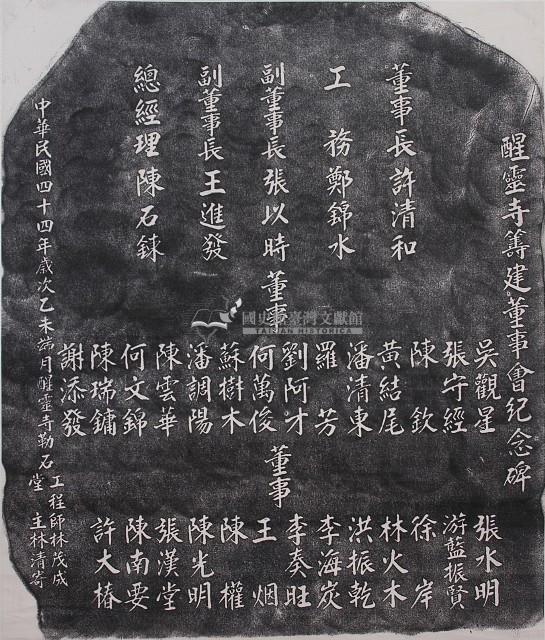 醒靈寺籌建董事會紀念碑
董事長許清和
工務鄭錦水
副董事長張以時
副董事長王進發
總經理陳石鍊
董事
吳觀星
張守經
陳欽
黃結尾
潘清東
羅芳
劉阿才
何萬俊
蘇樹木
潘調陽
陳雲華
何文錦
陳瑞鏞
謝添發
董事
張水明
游藍振賢
徐岸
林火木
洪振乾
李海炭
李奏旺
王烟
陳權
陳光明
張漢堂
陳南要
許大椿
中華民國四十四年歲次乙未端月醒靈寺勒石
工程師林茂成
堂主林清寄
國史館臺灣文獻館
TAIWAN HISTORICA